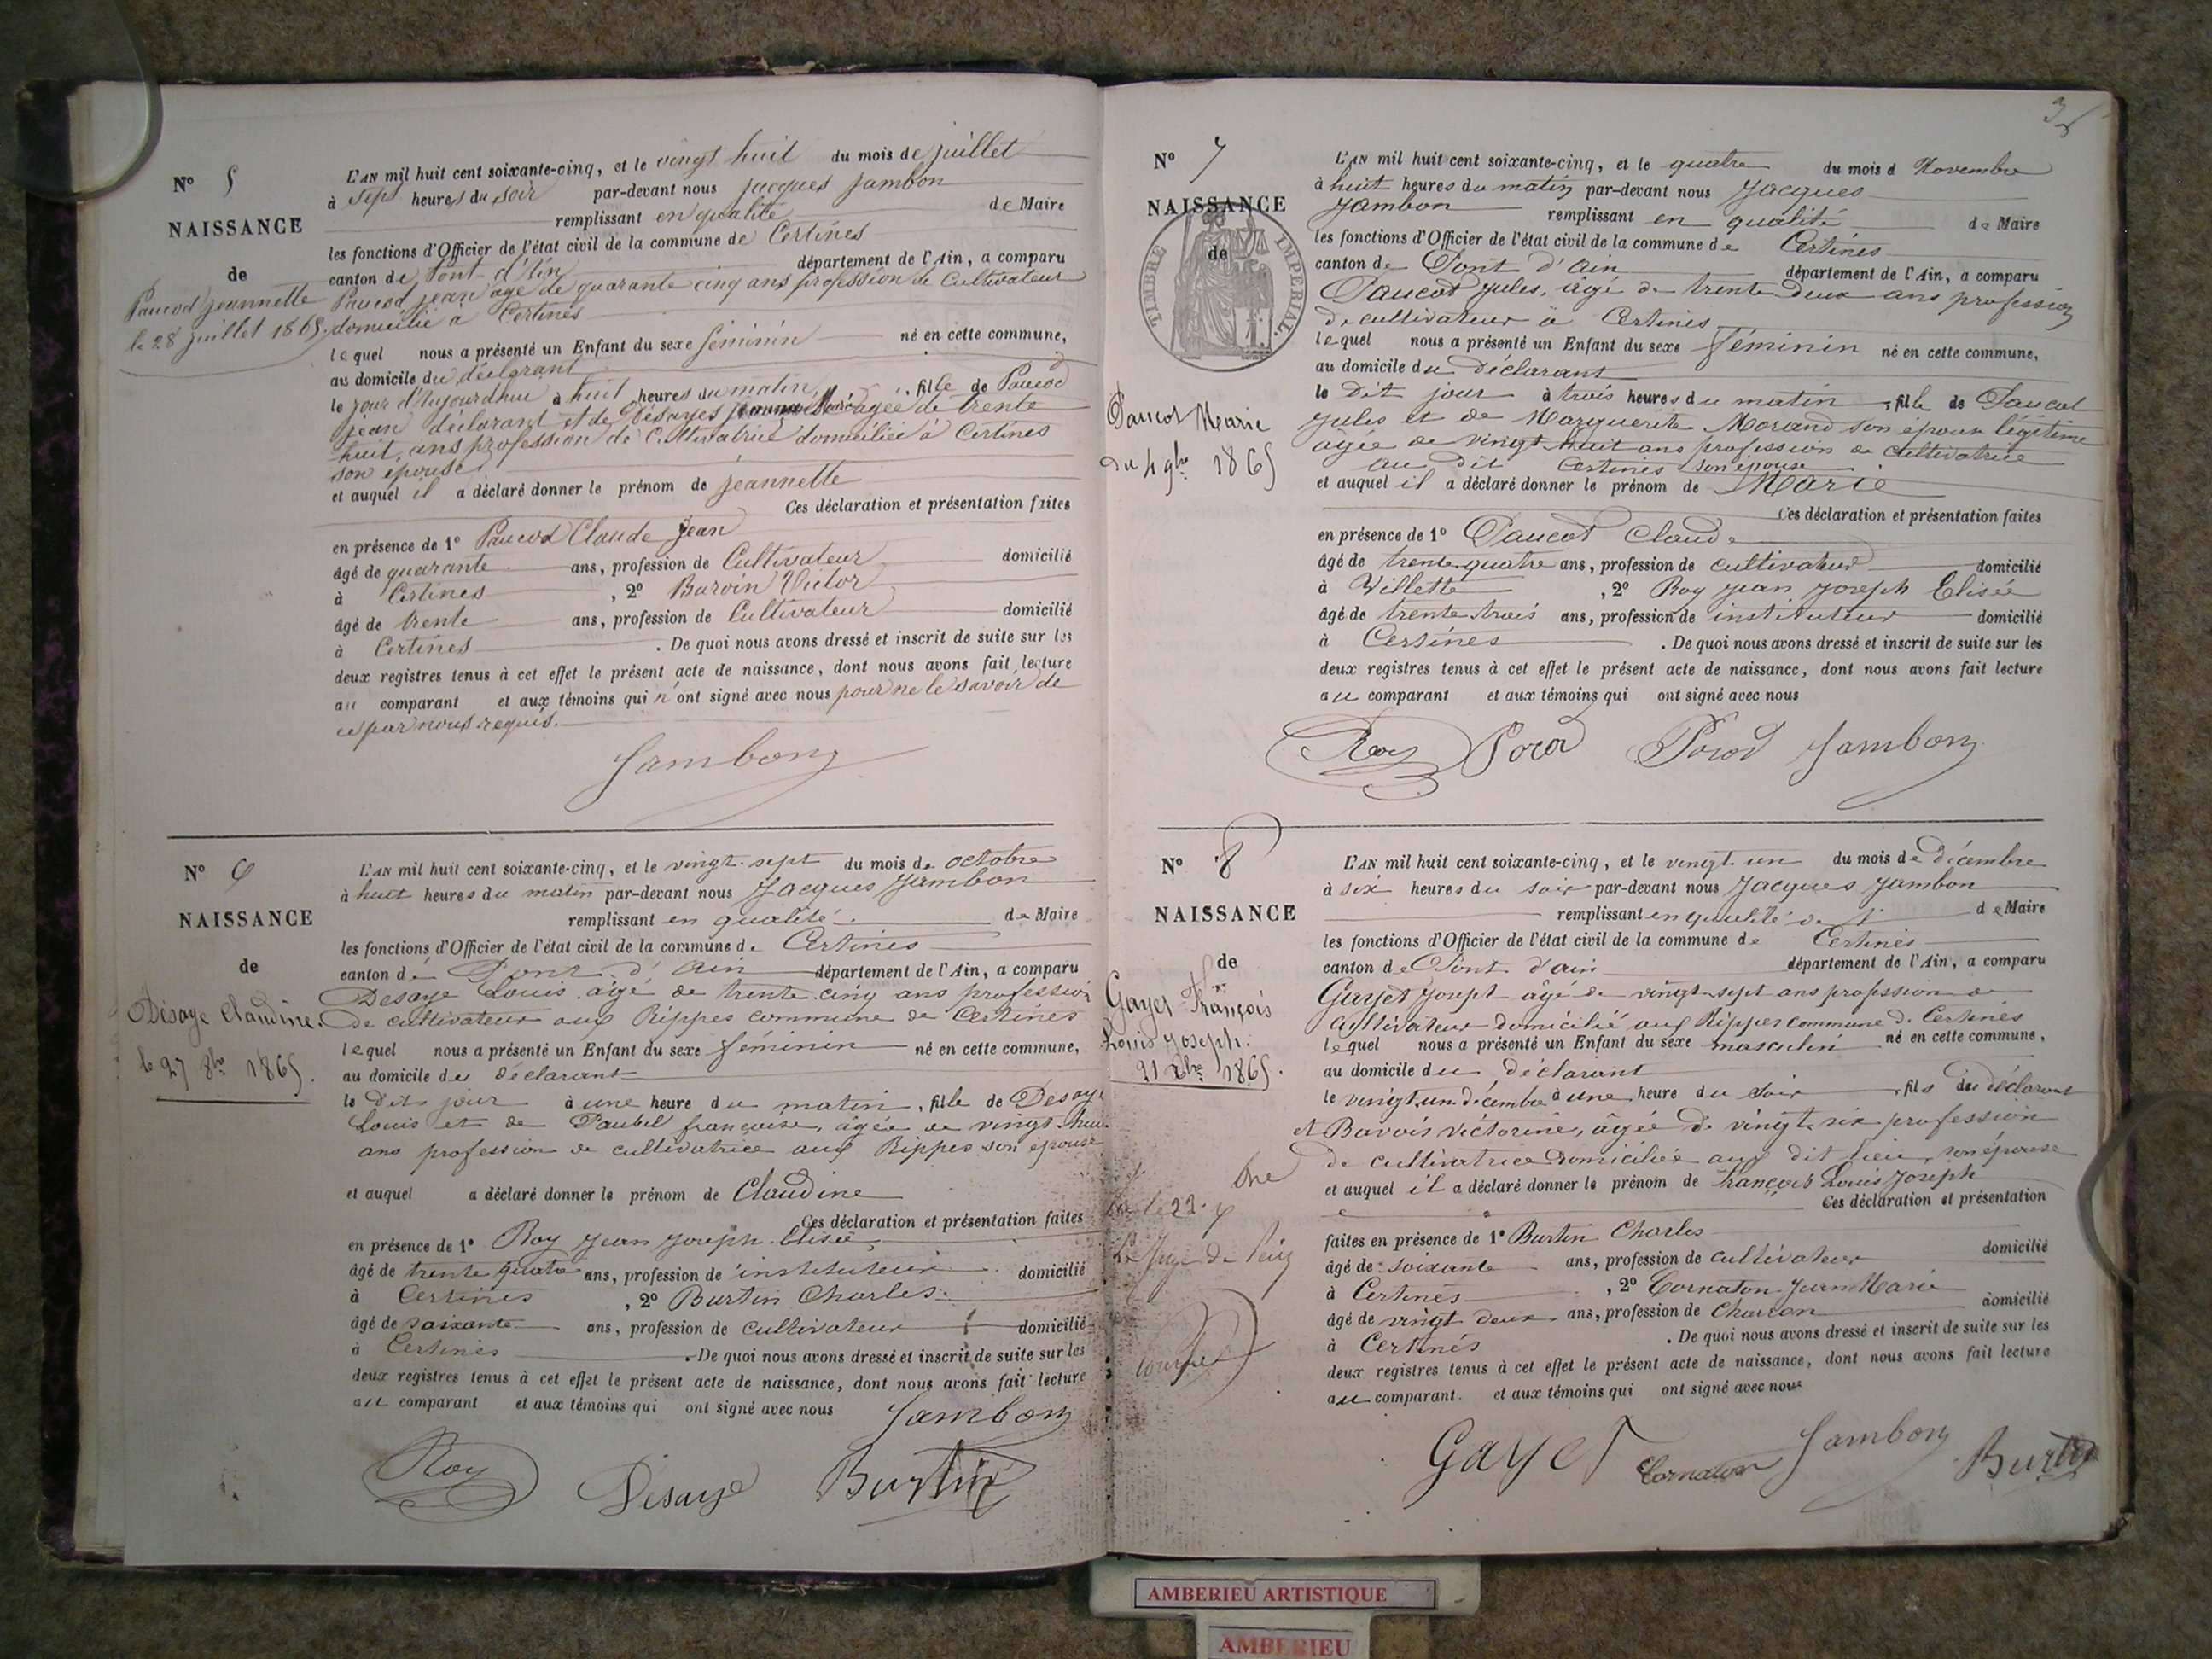 N° 5
NAISSANCE
de
Paucod Jeannette
le 28 juillet 1865.
L'AN mil huit cent soixante-cinq, et le vingt huit du mois de juillet
à sept heures du soir par-devant nous Jacques Jambon
remplissant en qualité de Maire
les fonctions d'Officier de l'état civil de la commune de Certines
canton de Pont d'Ain département de l'Ain, a comparu
Paucod Jean agé de quarante cinq ans profession de Cultivateur
domicilié à Certines
lequel nous a présenté un Enfant du sexe féminin né en cette commune,
au domicile du déclarant
le jour d'Aujourdhui à huit heures du matin, fille de Paucod
Jean déclarant et de Désayes agée de trente
huit ans profession de Cultivatrice domiciliée à Certines
son épouse
et auquel il a déclaré donner le prénom de Jeannette
Ces déclaration et présentation faites
en présence de 1° Paucod Claude Jean
âgé de quarante ans, profession de Cultivateur domicilié
à Certines, 2° Burvin Victor
âgé de trente ans, profession de Cultivateur domicilié
à Certines. De quoi nous avons dressé et inscrit de suite sur les
deux registres tenus à cet effet le présent acte de naissance, dont nous avons fait lecture
au comparant et aux témoins qui n'ont signé avec nous pour ne le savoir de
ce par nous requis.
Jambon
N° 6
NAISSANCE
de
Désaye Claudine.
le 27 8bre 1865.
L'AN mil huit cent soixante-cinq, et le vingt-sept du mois de octobre
à huit heures du matin par-devant nous Jacques Jambon
remplissant en qualité de Maire
les fonctions d'Officier de l'état civil de la commune de Certines
canton de Pont d'Ain département de l'Ain, a comparu
Desaye Louis âgé de trente cinq ans profession
de cultivateur aux Rippes commune de Certines
lequel nous a présenté un Enfant du sexe féminin né en cette commune,
au domicile du déclarant
le dit jour à une heure du matin, fille de Desaye
Louis et de Paubel françoise, agée de vingt huit
ans profession de cultivatrice aux Rippes son épouse
et auquel a déclaré donner le prénom de Claudine
Ces déclaration et présentation faites
en présence de 1° Roy Jean Joseph Elisée,
âgé de trente quatre ans, profession de instituteur domicilié
à Certines, 2° Burtin Charles.
âgé de soixante ans, profession de cultivateur domicilié
à Certines. De quoi nous avons dressé et inscrit de suite sur les
deux registres tenus à cet effet le présent acte de naissance, dont nous avons fait lecture
au comparant et aux témoins qui ont signé avec nous Jambon
Roy Désaye Burtin
3
N° 7
NAISSANCE
de
TIMBRE IMPERIAL.
Paucot Marie
du 4 9bre 1865
L'AN mil huit cent soixante-cinq, et le quatre du mois d Novembre
à huit heures du matin par-devant nous Jacques
Jambon remplissant en qualité de Maire
les fonctions d'Officier de l'état civil de la commune de Certines
canton de Pont d'Ain département de l'Ain, a comparu
Paucot Jules, âgé de trente deux ans profession
de cultivateur à Certines
lequel nous a présenté un Enfant du sexe féminin né en cette commune,
au domicile du déclarant
le dit jour à trois heures du matin, fille de Paucot
Jules et de Marguerite Morand son épouse légitime
agée de vingt huit ans profession de cultivatrice
au dit Certines son épouse
et auquel il a déclaré donner le prénom de Marie
Ces déclaration et présentation faites
en présence de 1° Paucot Claude
âgé de trente quatre ans, profession de cultivateur domicilié
à Villette, 2° Roy Jean Joseph Elisée
âgé de trente trois ans, profession de instituteur domicilié
à Certines. De quoi nous avons dressé et inscrit de suite sur les
deux registres tenus à cet effet le présent acte de naissance, dont nous avons fait lecture
au comparant et aux témoins qui ont signé avec nous
Roy Pocod Jambon
N° 8
NAISSANCE
de
Gayet François
Louis Joseph.
21 Xbre 1865.
L'AN mil huit cent soixante-cinq, et le vingt un du mois de Décembre
à six heures du soir par-devant nous Jacques Jambon
remplissant en qualité de Maire
les fonctions d'Officier de l'état civil de la commune de Certines
canton de Pont d'ain département de l'Ain, a comparu
Gayet Joseph âgé de vingt-sept ans profession de
cultivateur domicilié aux Rippes commune de Certines
lequel nous a présenté un Enfant du sexe masculin né en cette commune,
au domicile du déclarant
le vingt un décembre à une heure du soir, fils du déclarant
et Bavois Victorine, âgée de vingt six profession
de cultivatrice domiciliée aux dit lieu, son épouse
et auquel il a déclaré donner le prénom de François Louis Joseph
Ces déclaration et présentation
faites en présence de 1° Burtin Charles
âgé de soixante ans, profession de cultivateur domicilié
à Certines, 2° Cornaton Jean Marie
âgé de vingt deux ans, profession de charron domicilié
à Certines. De quoi nous avons dressé et inscrit de suite sur les
deux registres tenus à cet effet le présent acte de naissance, dont nous avons fait lecture
au comparant. et aux témoins qui ont signé avec nous
Le Juge de Paix
Gayet Cornaton Jambon Burtin
AMBERIEU ARTISTIQUE
AMBERIEU